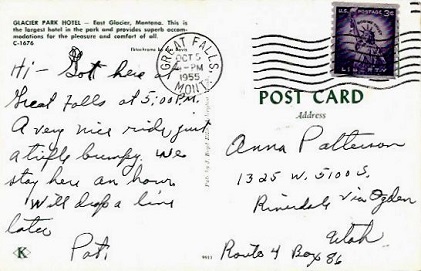 GLACIER PARK HOTEL — East Glacier, Montana. This is
the largest hotel in the park and provides superb accom-
modations for the pleasure and comfort of all.
C-1676
Ektachrome by
Hi - Got here at
Great Falls at 5:00 P.M.
A very nice ride, just
a trifle bumpy. We
stay here an hour
Will drop a line
later
Pat.
K
GREAT FALLS,
OCT 5
PM
1955
MONT.
U.S. POSTAGE 3¢
LIBERTY
POST CARD
Address
Anna Patterson
1325 W. 5100 S.
Riverdale Via Ogden
Utah
Route 4 Box 86